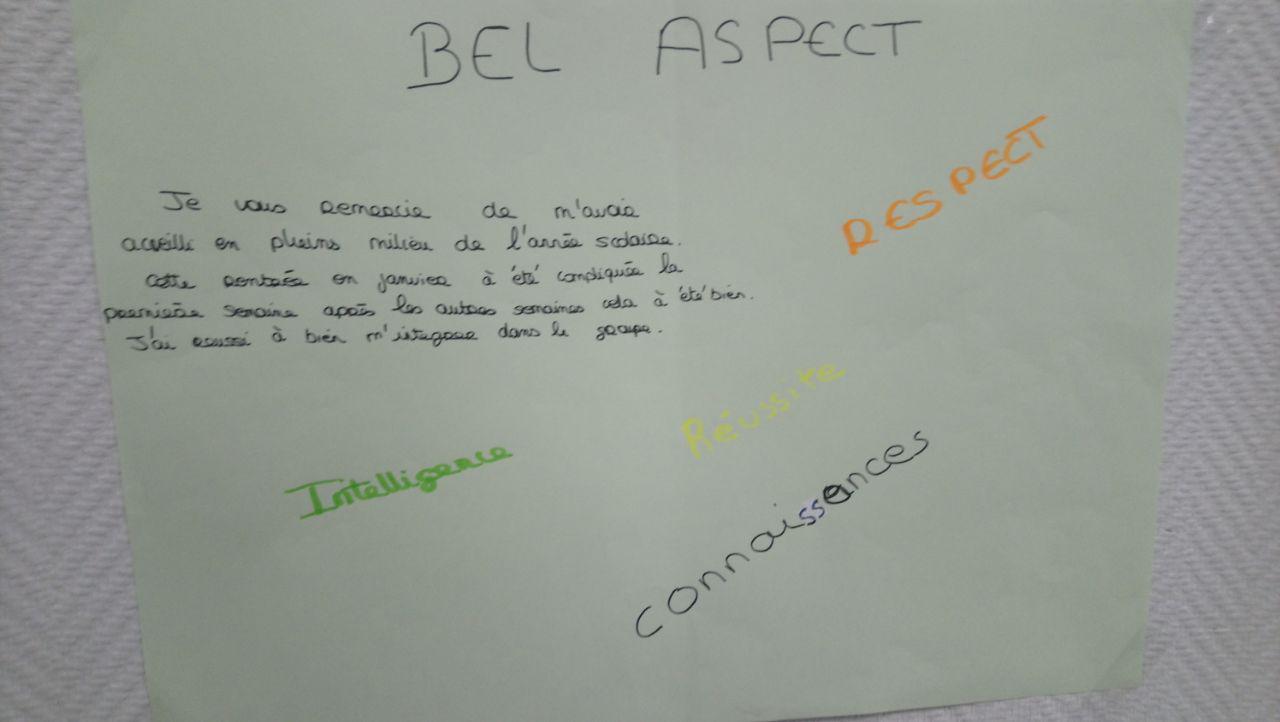 BEL ASPECT
RESPECT
Je vous remercie de m'avoir
acueilli en pleins milieu de l'année scolaire.
Cette rentrée en janvier à été compliquée la
première semaine après les autres semaines cela à été bien.
J'ai reussi à bien m'integrer dans le groupe.
Réussite
Intelligence
connaissances